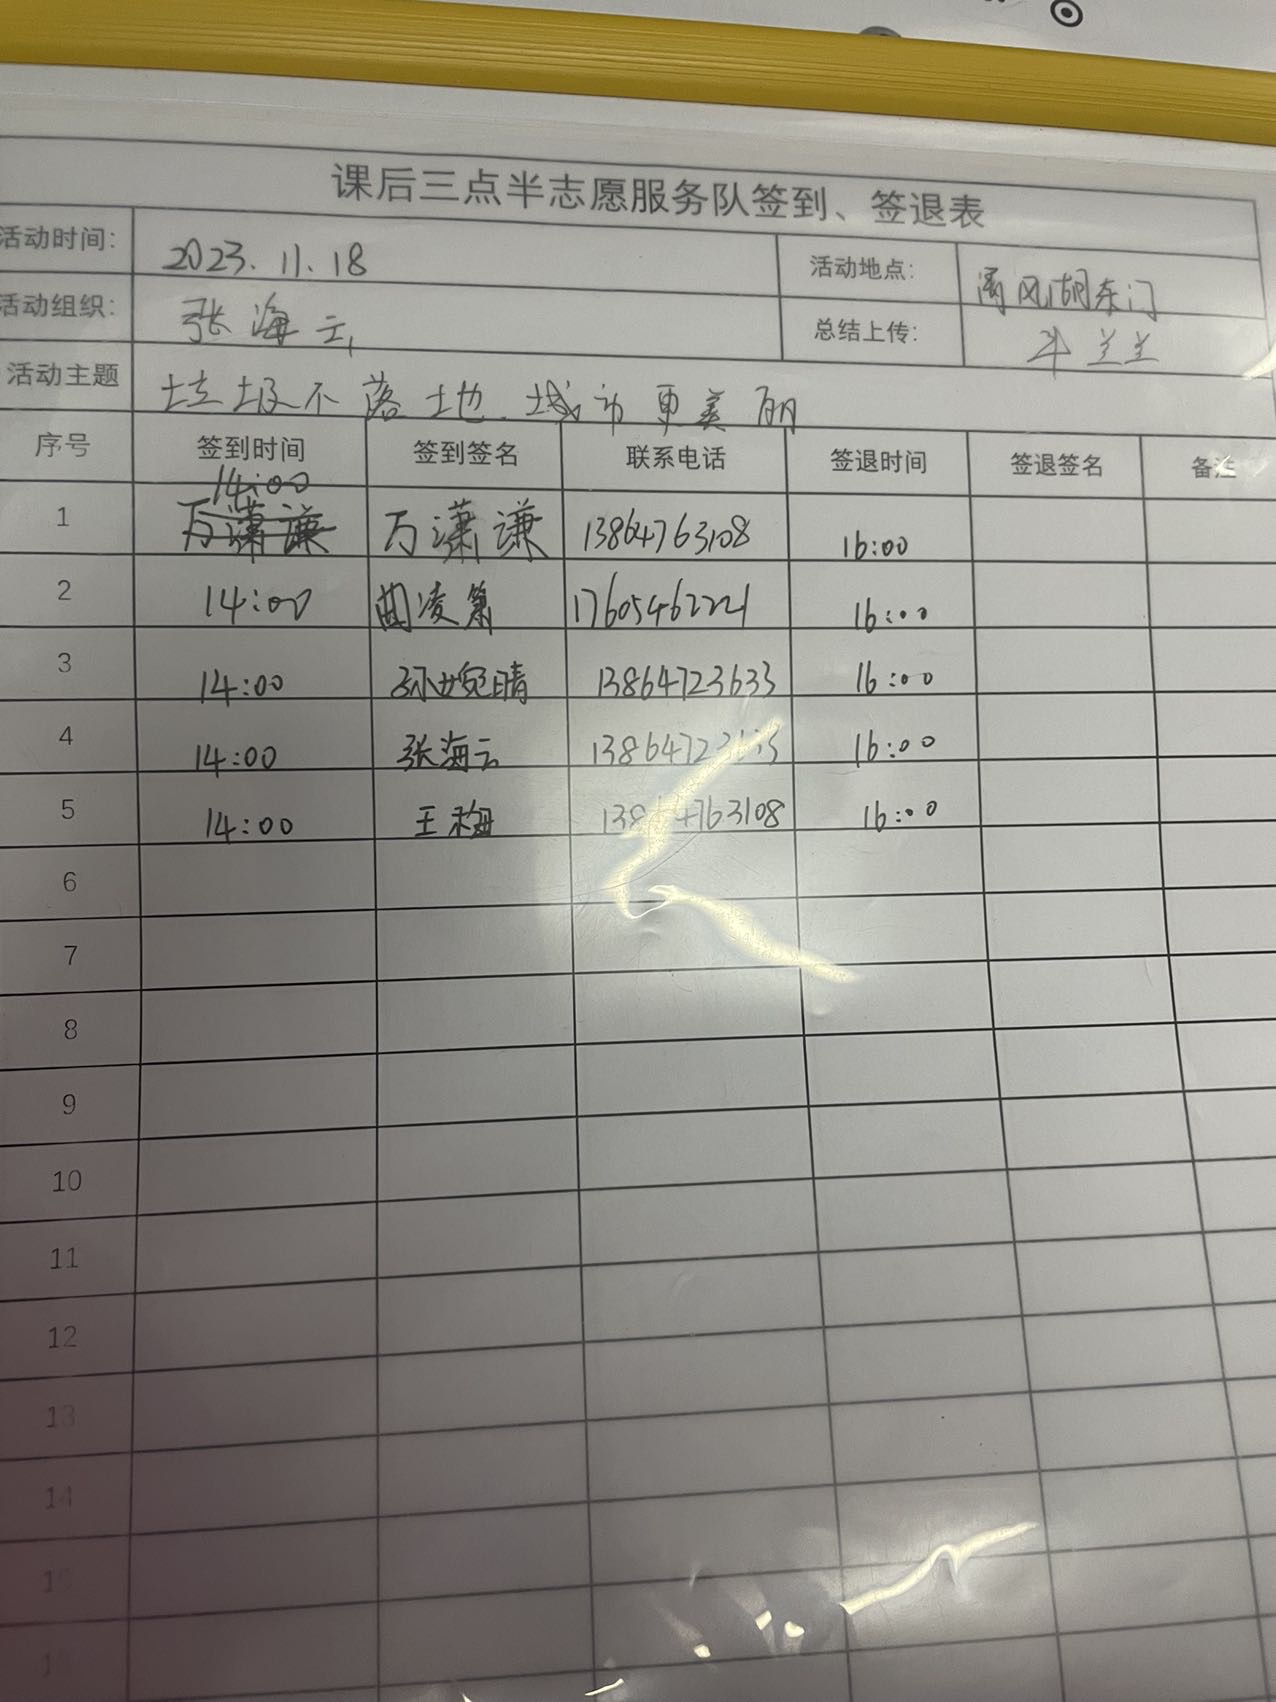 课后三点半志愿服务队签到、签退表
活动时间： 2023.11.18 活动地点： 清风湖东门
活动组织： 张海云 总结上传： 牛兰兰
活动主题 垃圾不落地 城市更美丽
序号 签到时间 签到签名 联系电话 签退时间 签退签名 备注
14:00
1 万潇谦 万潇谦 13864763108 16:00
2 14:00 曲凌箫 17605462221 16:00
3 14:00 孙婉晴 13864723633 16:00
4 14:00 张海云 16:00
5 14:00 王梅 16:00
6
7
8
9
10
11
12
13
14